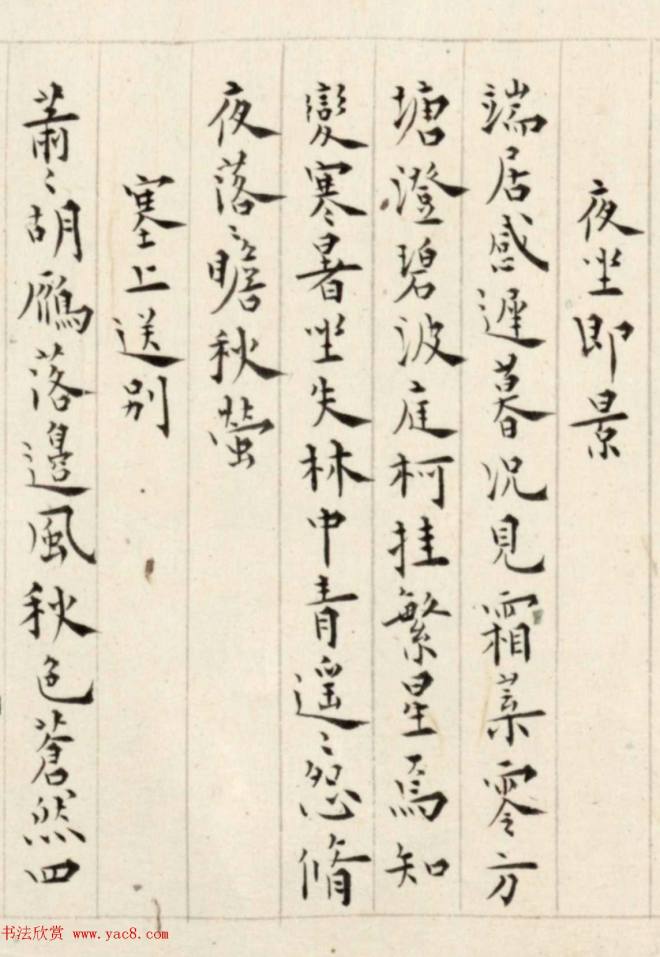 夜坐即景
端居感遲暮況見霜葉零方
塘澄碧波庭柯挂繁星焉知
變寒暑坐失林中青遥〻怨脩
夜落〻瞻秋螢
塞上送别
蕭〻胡鴈落邊風秋色蒼然四
书法欣赏 www.yac8.com